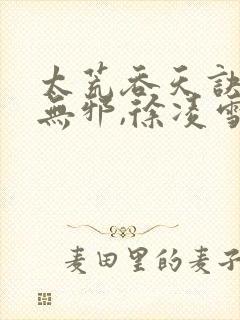 太荒吞天訣
無邪,徐凌雪
麦田里的麦子